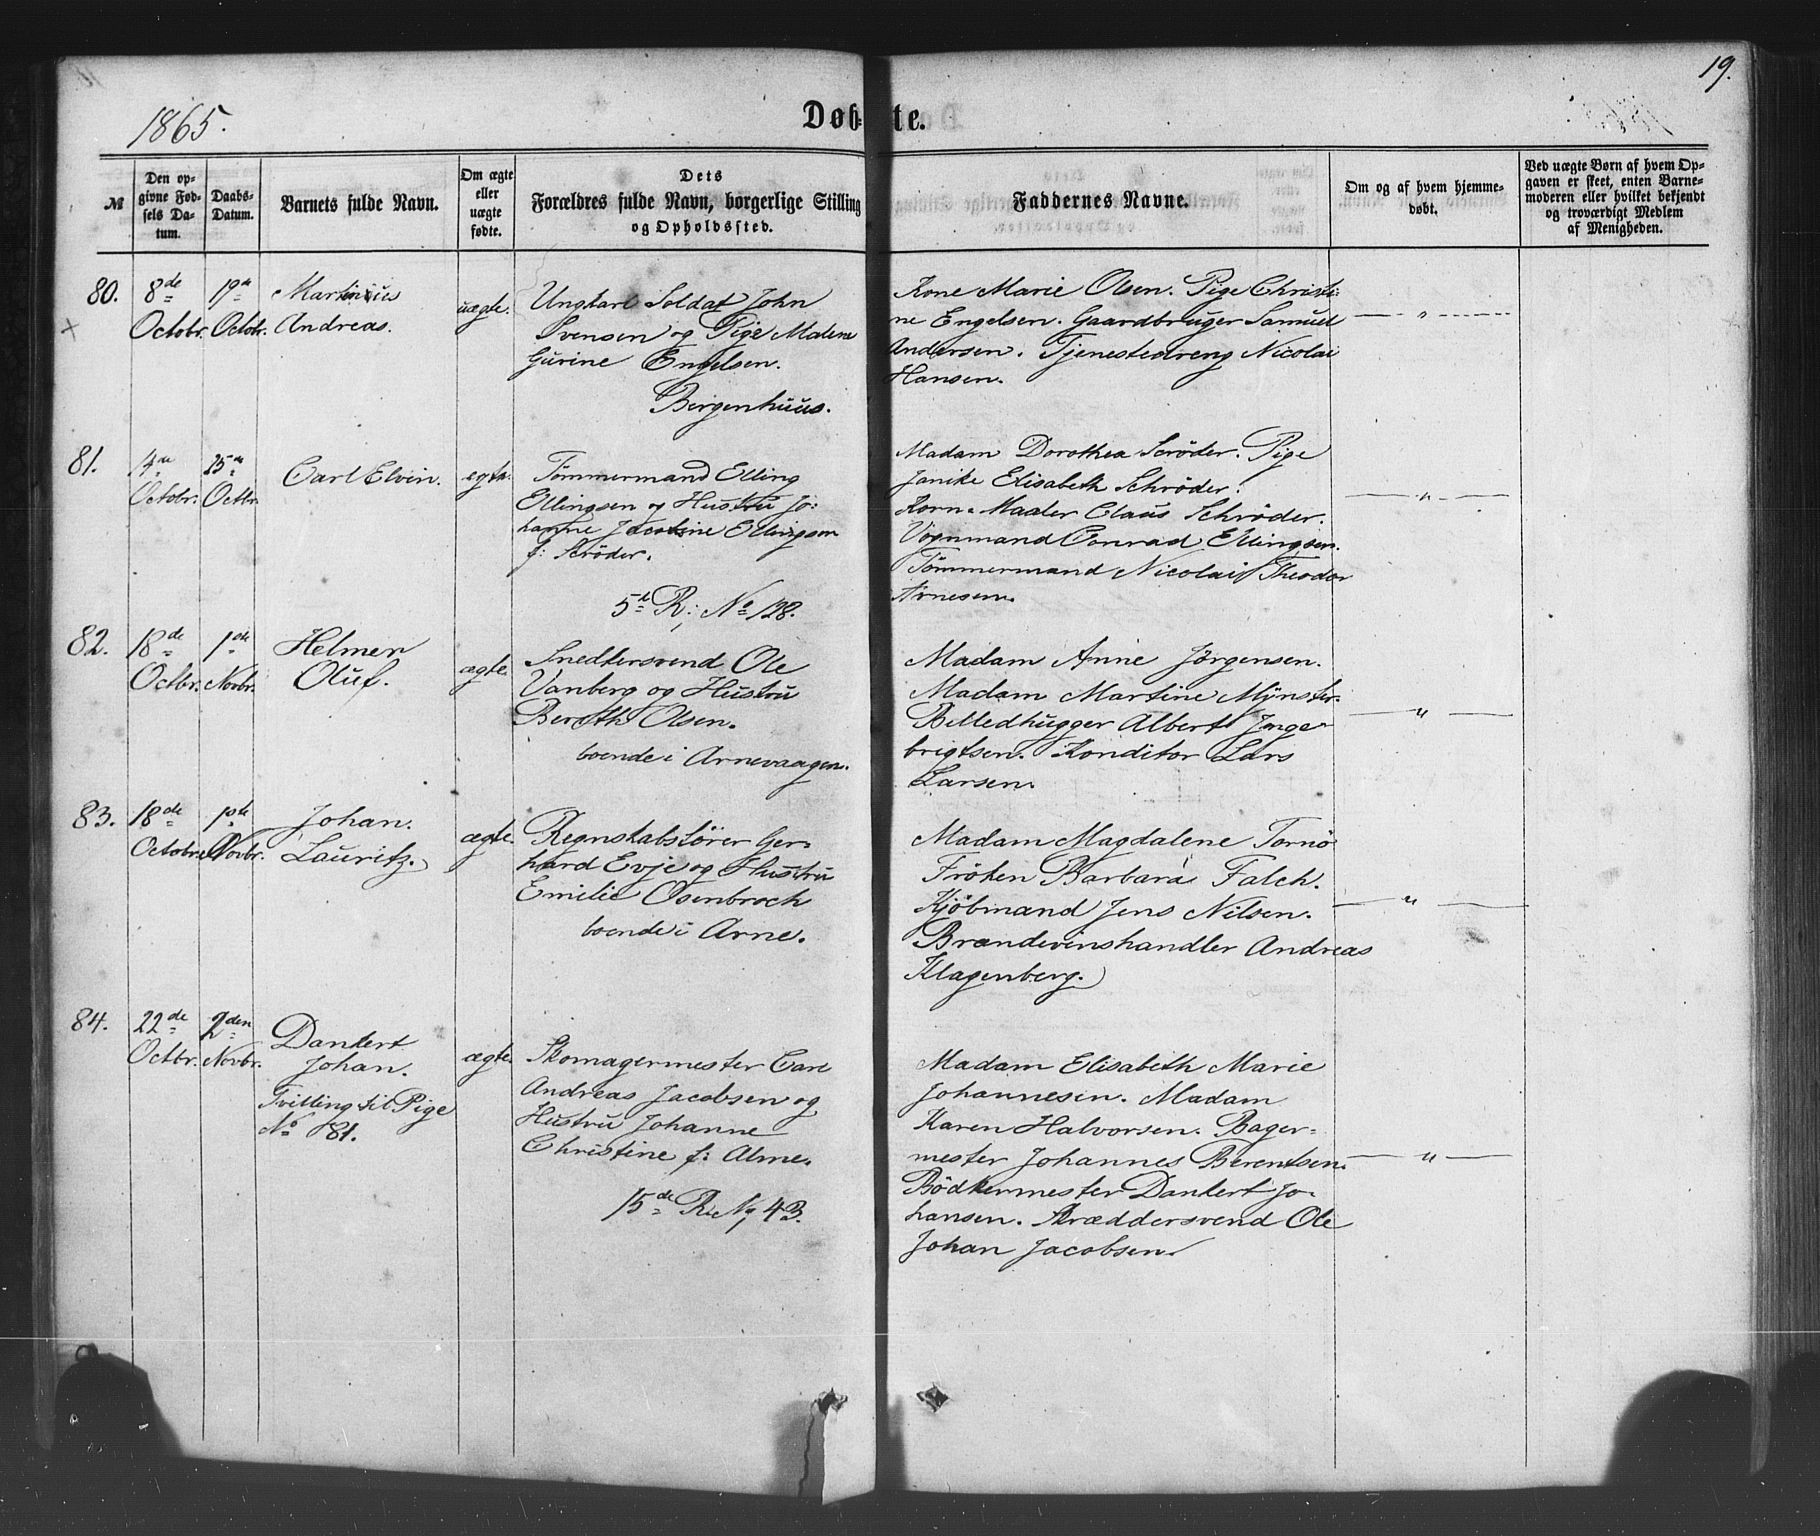 19.
1865.
Døbte.
№
Den opgivne Fødsels Datum.
Daabs-Datum.
Barnets fulde Navn.
Om ægte eller uægte fødte.
Dets Forældres fulde Navn, borgerlige Stilling og Opholdssted.
Faddernes Navne.
Om og af hvem hjemmedøbt.
Ved uægte Børn af hvem Opgaven er skeet, enten Barnemoderen eller hvilket bekjendt og troværdigt Medlem af Menigheden.
80.
8de
Octobr.
19de
Octob.
Martinius
Andreas.
uægte.
Ungkarl Soldat John
Svensen og Pige Malene
Gurine Engelsen.
Bergenhuus.
Kone Marie Olsen. Pige Christi:
ne Engelsen. Gaardbruger Samuel
Andersen. Tjenestedreng Nicolai
Hansen.
— " —
81.
Octobr.
25de
Octbr.
Carl Elvin.
ægte.
Tömmermand Elling
Ellingsen og Hustru Jo:
hanne Jacobine Ellingsen
f: Scröder.
5te R: No 128.
Madam Dorothea Scröder. Pige
Janike Elisabeth Schröder.
Korn-Maaler Claus Schröder.
Vognmand Conrad Ellingsen.
Tömmermand Nicolai Theodor
Arnesen.
— " —
82.
18de
Octbr.
1ste
Novbr.
Helmer
Oluf.
ægte.
Snedkersvend Ole
Vanberg og Hustru
Berethe Olsen.
boende i Arnevaagen.
Madam Anne Jörgensen.
Madam Martine Mynster.
Billedhugger Albert Inge-
brigtsen. Konditor Lars
Larsen.
— " —
83.
18de
Octobr.
1ste
Novbr.
Johan.
Lauritz.
ægte.
Regnskabsförer Ger-
hard Evje og Hustru
Emilie Osenbroch
boende i Arne.
Madam Magdalene Tornö
Fröken Barbara Falch.
Kjöbmand Jens Nilsen.
Brændevinshandler Andreas
Klagenberg.
— " —
84.
22de
Octbr.
2den
Novbr.
Dankert
Johan.
Tvilling til Pige
No 81.
ægte.
Skomagermester Carl
Andreas Jacobsen og
Hustru Johanne
Christine f: Alme.
15de R: No 43.
Madam Elisabeth Marie
Johannesen. Madam
Karen Halvorsen. Bager-
mester Johannes Berentsen.
Bödkermester Dankert Jo-
hansen. Skræddersvend Ole
Johan Jacobsen.
— " —